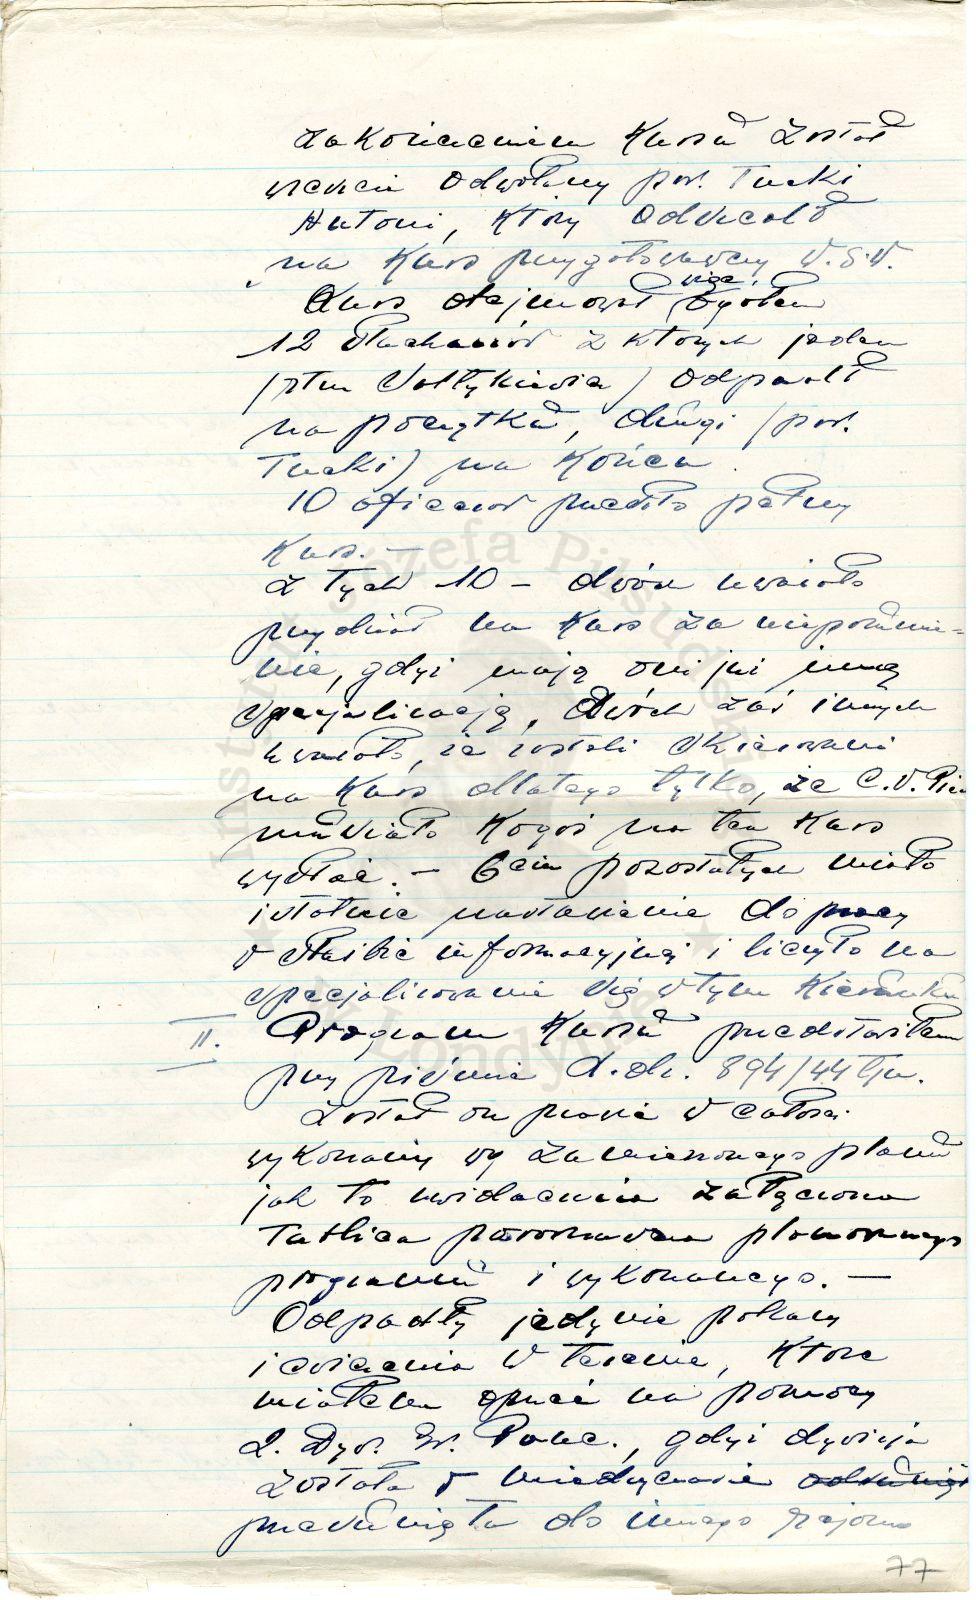 zakończeniem Kursu został
wreszcie odwołany por. Tucki
Antoni, który odleciał
na Kurs przygotowawczy W.S.W.
Kurs obejmował więc ogółem
12 słuchaczów z których jeden
/ptm / odpadł
na początku, drugi /por.
Tucki/ na końcu.
10 oficerów przeszło pełny
Kurs. —
Z tych 10 – dwóch uważało
przydział na Kurs za nieporozumie-
nie, gdyż mają oni już inną
specjalizację, dwóch zaś innych
uważało, że zostali skierowani
na Kurs dlatego tylko, że C.W.
musiało kogoś na ten Kurs
wysłać. – 6ciu pozostałych miało
istotnie nastawienie do pracy
w służbie informacyjnej i liczyło na
specjalizowanie się w tym kierunku
II. Program Kursu przedstawiłem
przy piśmie L.dz. 894/44 tjn.
Został on prawie w całości
wykonany wg zamierzonego planu
jak to uwidacznia załączona
Tablica porównawcza planowanego
programu i wykonanego. —
Odpadły jedynie pokazy
i ćwiczenia w terenie, które
miałem oprzeć na pomocy
2. Dyw. Panc., gdyż dywizja
została w międzyczasie
przesunięta do innego rejonu
77
Instytut Józefa Piłsudskiego ★ w Londynie ★